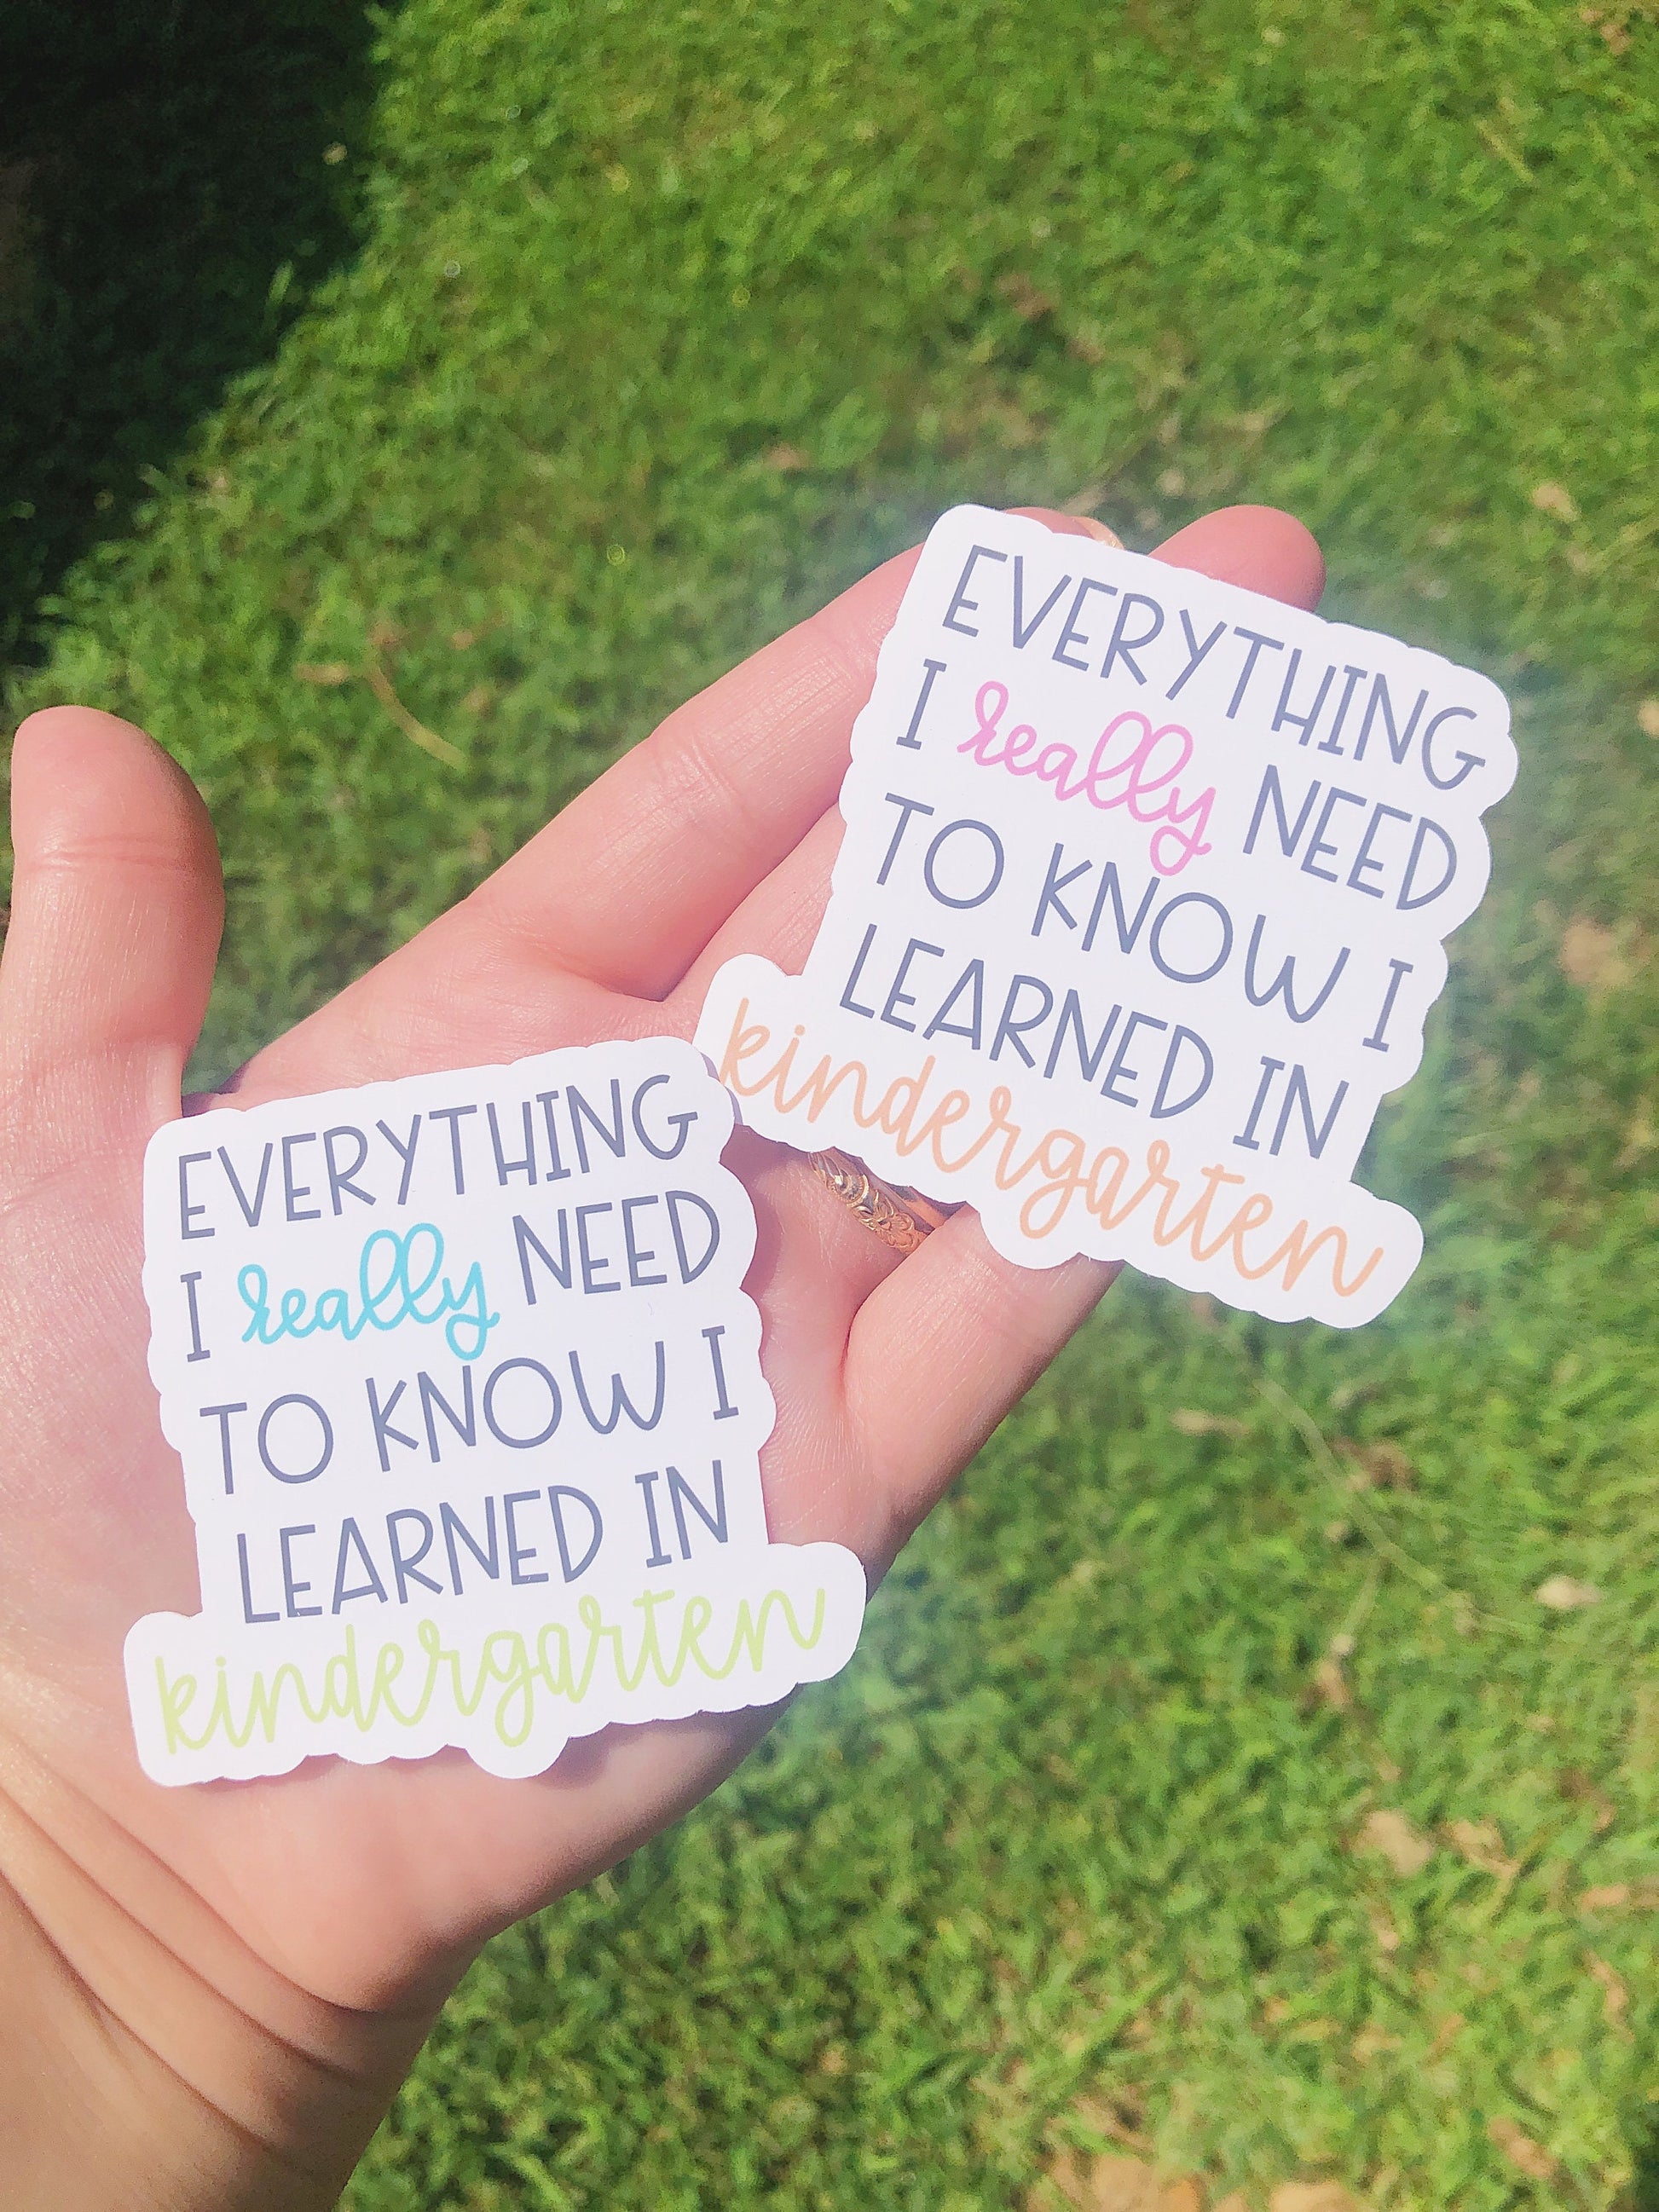 EVERYTHING
I really NEED
TO KNOW I
LEARNED IN
kindergarten
EVERYTHING
I really NEED
TO KNOW I
LEARNED IN
kindergarten